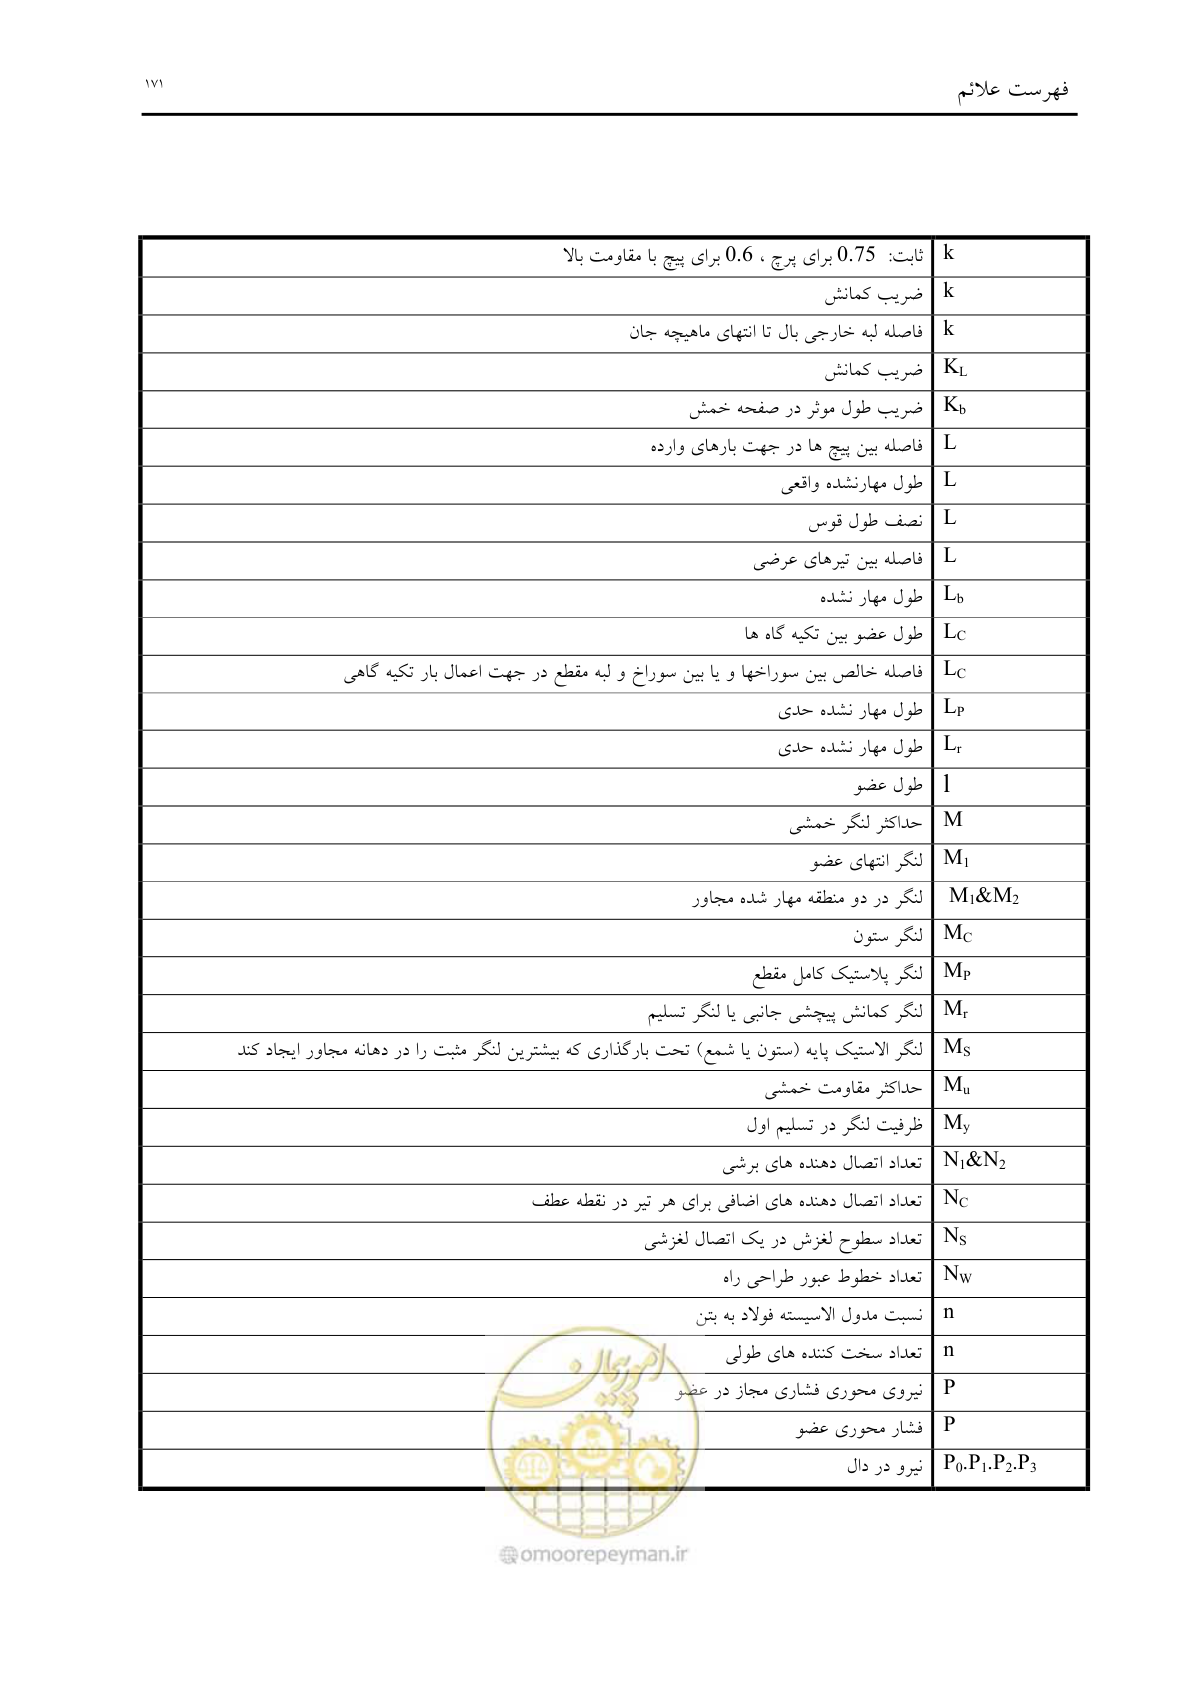 فهرست علائم ۱۷۱
k ثابت: 0.75 برای پرچ ، 0.6 برای پیچ با مقاومت بالا
k ضریب کمانش
k فاصله لبه خارجی بال تا انتهای ماهیچه جان
K_L ضریب کمانش
K_b ضریب طول موثر در صفحه خمش
L فاصله بین پیچ ها در جهت بارهای وارده
L طول مهارنشده واقعی
L نصف طول قوس
L فاصله بین تیرهای عرضی
L_b طول مهار نشده
L_C طول عضو بین تکیه گاه ها
L_C فاصله خالص بین سوراخها و یا بین سوراخ و لبه مقطع در جهت اعمال بار تکیه گاهی
L_P طول مهار نشده حدی
L_r طول مهار نشده حدی
l طول عضو
M حداکثر لنگر خمشی
M_1 لنگر انتهای عضو
M_1&M_2 لنگر در دو منطقه مهار شده مجاور
M_C لنگر ستون
M_P لنگر پلاستیک کامل مقطع
M_r لنگر کمانش پیچشی جانبی یا لنگر تسلیم
M_S لنگر الاستیک پایه (ستون یا شمع) تحت بارگذاری که بیشترین لنگر مثبت را در دهانه مجاور ایجاد کند
M_u حداکثر مقاومت خمشی
M_y ظرفیت لنگر در تسلیم اول
N_1&N_2 تعداد اتصال دهنده های برشی
N_C تعداد اتصال دهنده های اضافی برای هر تیر در نقطه عطف
N_S تعداد سطوح لغزش در یک اتصال لغزشی
N_W تعداد خطوط عبور طراحی راه
n نسبت مدول الاسیسته فولاد به بتن
n تعداد سخت کننده های طولی
P نیروی محوری فشاری مجاز در عضو
P فشار محوری عضو
P_0.P_1.P_2.P_3 نیرو در دال
امور پیمان
@omoorepeyman.ir